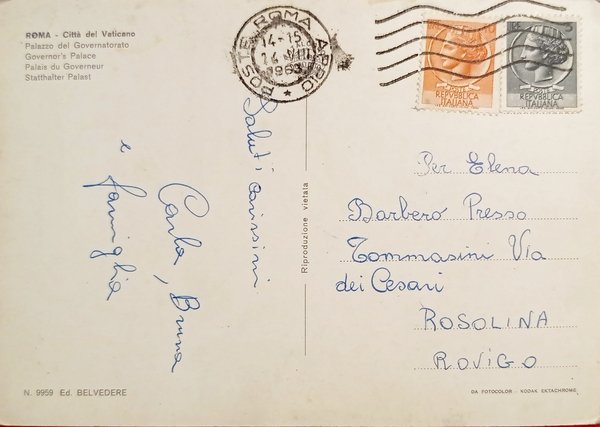 ROMA - Città del Vaticano
Palazzo del Governatorato
Governor's Palace
Palais du Governeur
Statthalter Palast
POSTE ROMA
14-15
1963
POSTE
REPVBBLICA
ITALIANA
POSTE
REPVBBLICA
ITALIANA
Saluti carissimi
Carla, Bruna
e
famiglia
Riproduzione vietata
Per Elena
Barbero Presso
Tommasini Via
dei Cesari
ROSOLINA
ROVIGO
N. 9959 Ed. BELVEDERE
DA FOTOCOLOR - KODAK EKTACHROME